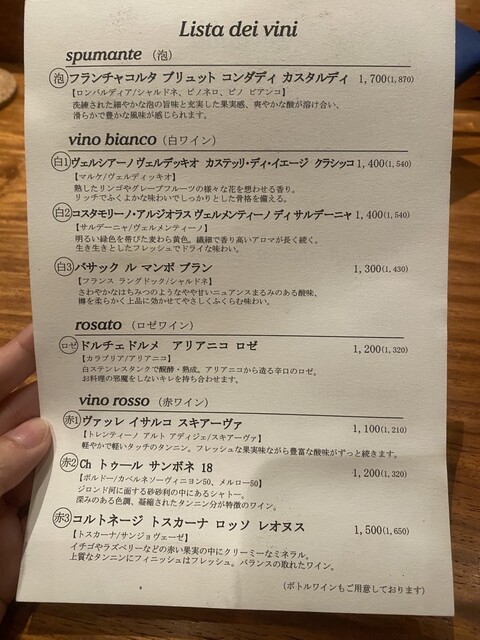 Lista dei vini
spumante （泡）
泡 フランチャコルタ ブリュット コンダディ カスタルディ 1,700(1,870)
【ロンバルディア/シャルドネ、ピノネロ、ピノ ビアンコ】
洗練された細やかな泡の旨味と充実した果実感、爽やかな酸が溶け合い、
滑らかで豊かな風味が感じられます。
vino bianco（白ワイン）
白1 ヴェルシアーノ ヴェルデッキオ カステッリ・ディ・イエージ クラシッコ 1,400(1,540)
【マルケ/ヴェルディッキオ】
熟したリンゴやグレープフルーツの様々な花を想わせる香り。
リッチでふくよかな味わいでしっかりとした骨格を備える。
白2 コスタモリーノ・アルジオラス ヴェルメンティーノ ディ サルデーニャ 1,400(1,540)
【サルデーニャ/ヴェルメンティーノ】
明るい緑色を帯びた麦わら黄色。繊細で香り高いアロマが長く続く。
生き生きとしたフレッシュでドライな味わい。
白3 バサック ル マンポ ブラン 1,300(1,430)
【フランス ラングドック/シャルドネ】
さわやかなはちみつのようなやや甘いニュアンスまるみのある酸味、
樽を柔らかく上品に効かせてやさしくふくらむ味わい。
rosato（ロゼワイン）
ロゼ ドルチェドルメ アリアニコ ロゼ 1,200(1,320)
【カラブリア/アリアニコ】
白ステンレスタンクで醗酵・熟成。アリアニコから造る辛口のロゼ。
お料理の邪魔をしないキレを持ち合わせます。
vino rosso（赤ワイン）
赤1 ヴァッレ イサルコ スキアーヴァ 1,100(1,210)
【トレンティーノ アルト アディジェ/スキアーヴァ】
軽やかで軽いタッチのタンニン。フレッシュな果実味ながら豊富な酸味がずっと続きます。
赤2 Ch トゥール サンボネ 18 1,200(1,320)
【ボルドー/カベルネソーヴィニヨン50、メルロー50】
ジロンド河に面する砂砂利の中にあるシャトー。
深みのある色調、凝縮されたタンニン分が特徴のワイン。
赤3 コルトネージ トスカーナ ロッソ レオヌス 1,500(1,650)
【トスカーナ/サンジョヴェーゼ】
イチゴやラズベリーなどの赤い果実の中にクリーミーなミネラル。
上質なタンニンにフィニッシュはフレッシュ。バランスの取れたワイン。
（ボトルワインもご用意しております）